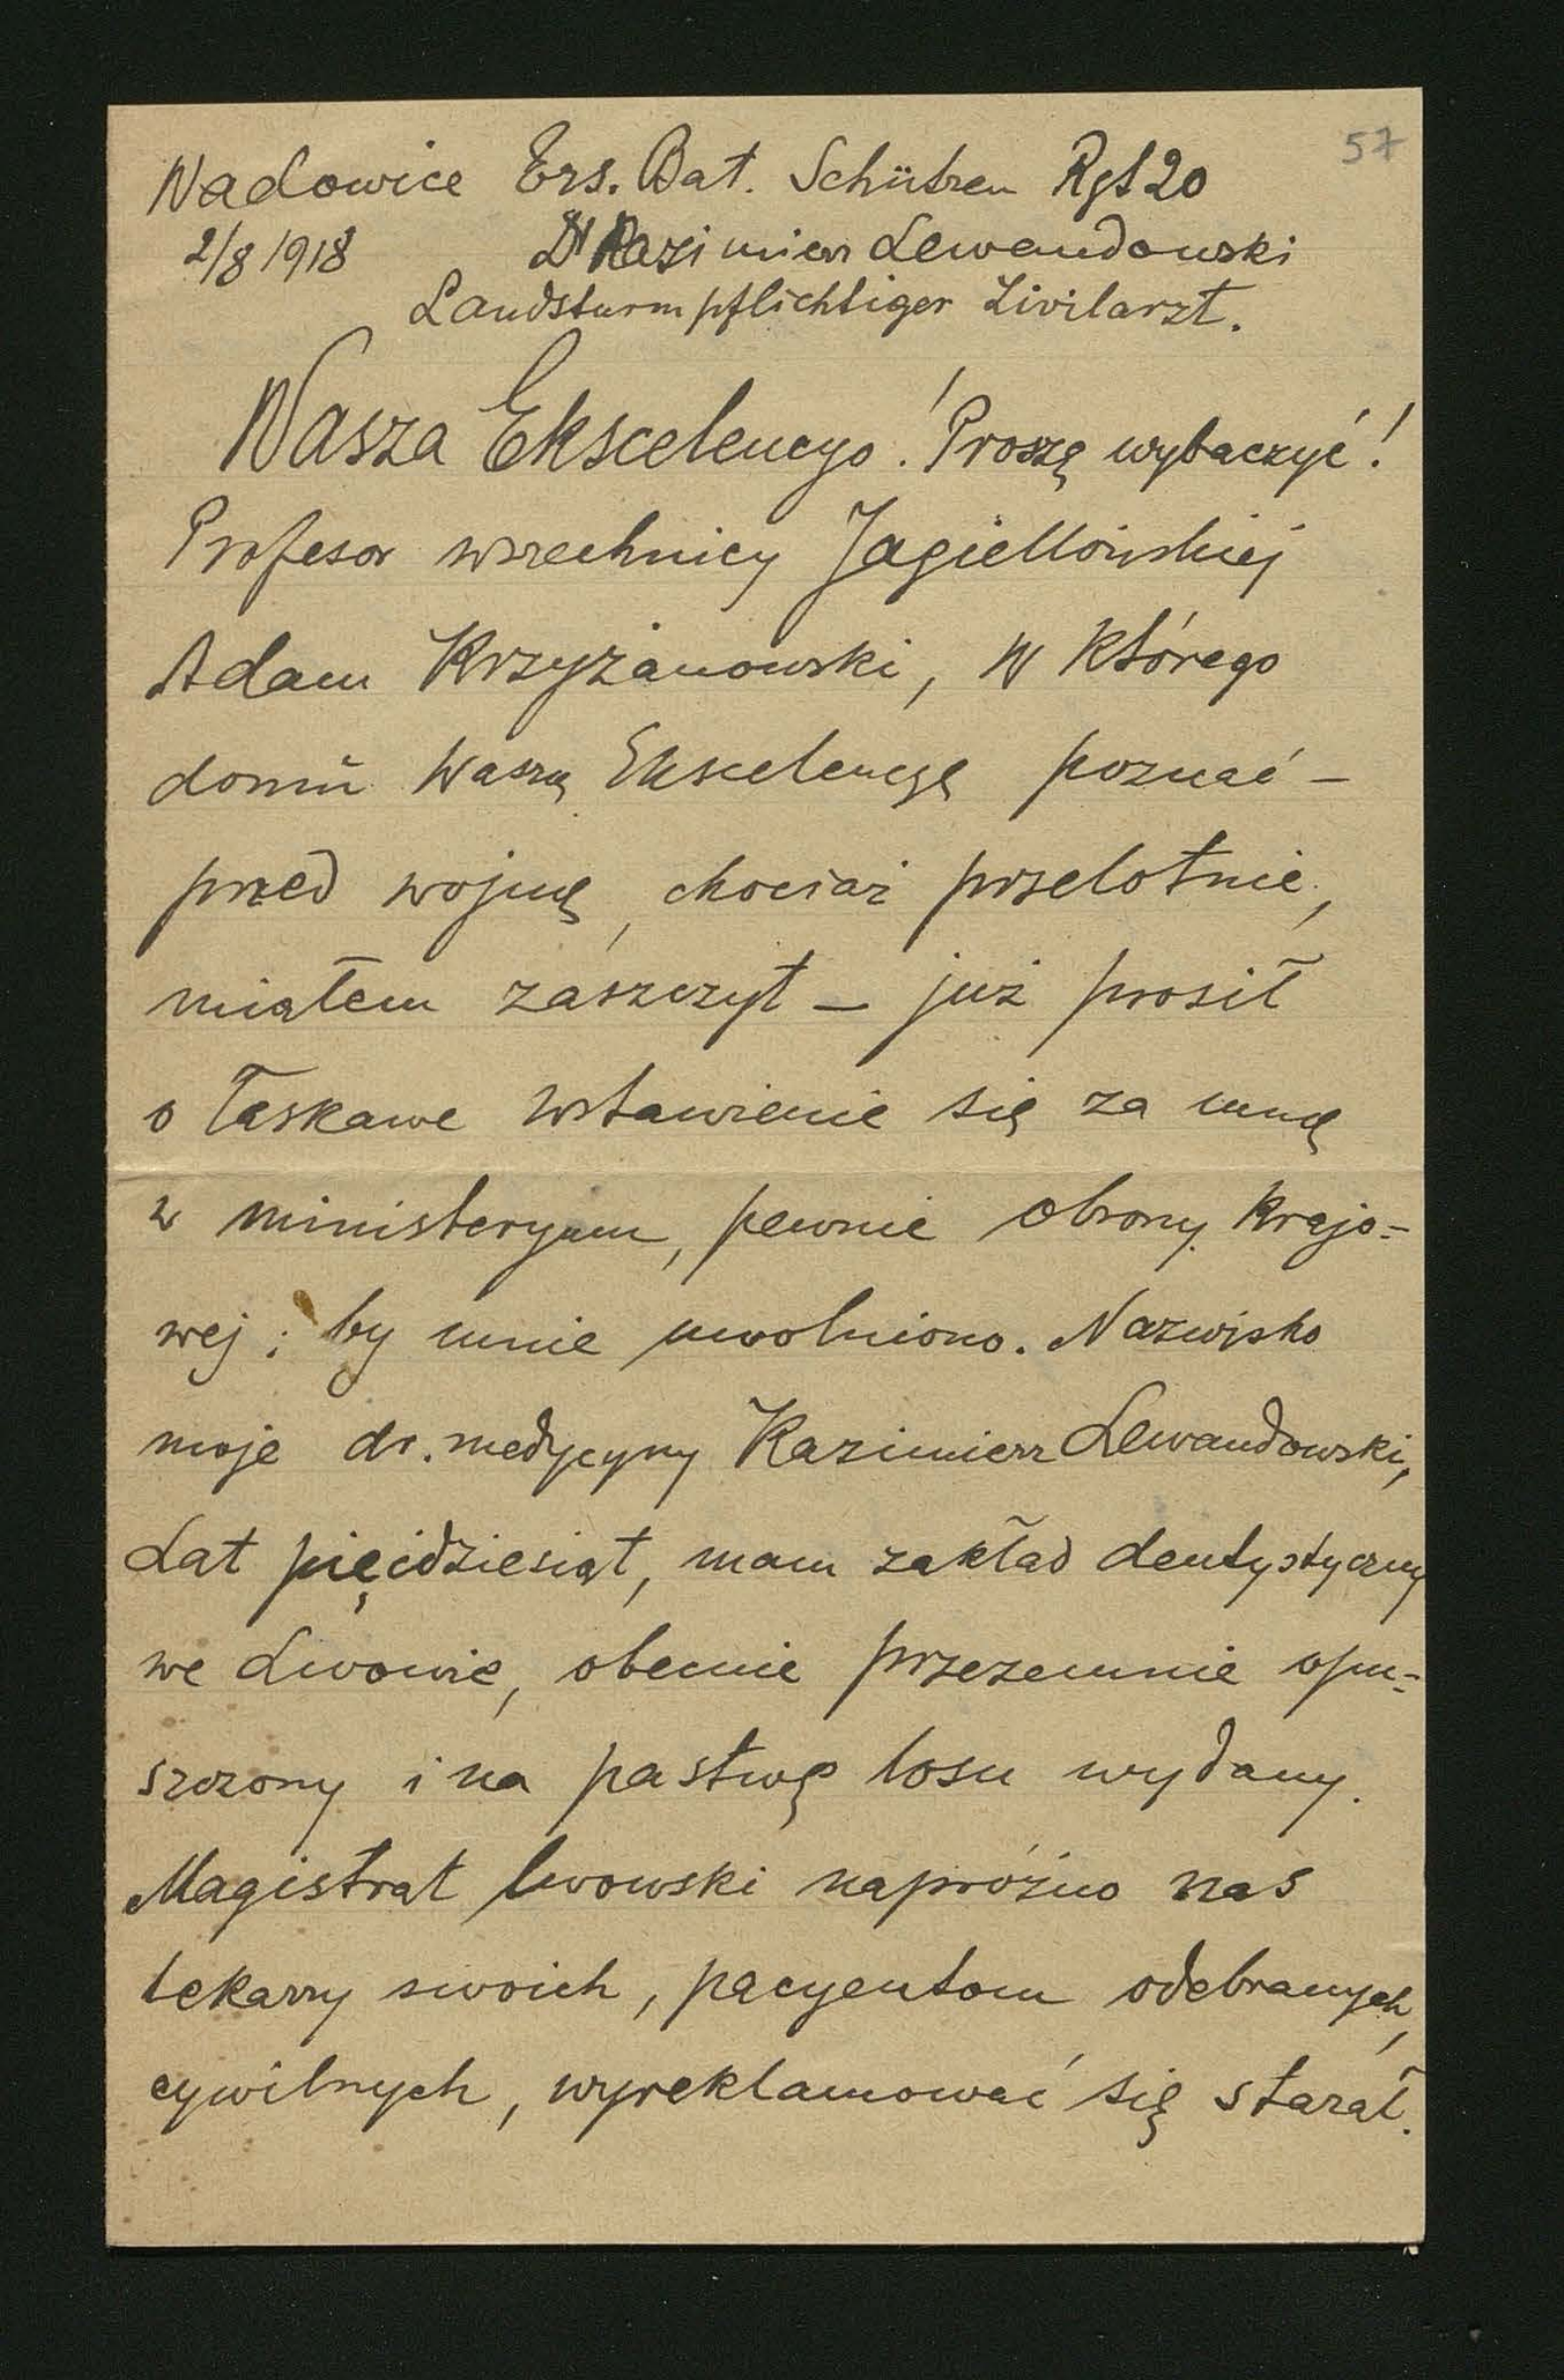 57
Wadowice Ers. Bat. Schützen Rgt 20
2/8 1918 Dr Kazimierz Lewandowski
Landsturmpflichtiger Zivilarzt.
Wasza Ekscelencyo! Proszę wybaczyć!
Profesor wszechnicy Jagiellońskiej
Adam Krzyżanowski, w którego
domu Waszą Ekscelencyę poznać –
przed wojną, chociaż przelotnie,
miałem zaszczyt – już prosił
o łaskawe wstawienie się za mną
w ministeryum, pewnie obrony krajo=
wej; by mnie uwolniono. Nazwisko
moje dr. medycyny Kazimierz Lewandowski,
Lat pięćdziesiąt, mam zakład dentystyczny
we Lwowie, obecnie przezemnie opu=
szczony i na pastwę losu wydany.
Magistrat lwowski napróżno nas
lekarzy swoich, pacyentom odebranych,
cywilnych, wyreklamować się starał.